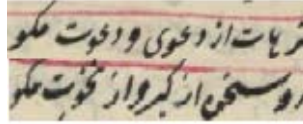 ترهات از دعوی و دعوت مگو
رو سخن از کبر و از نخوت مگو